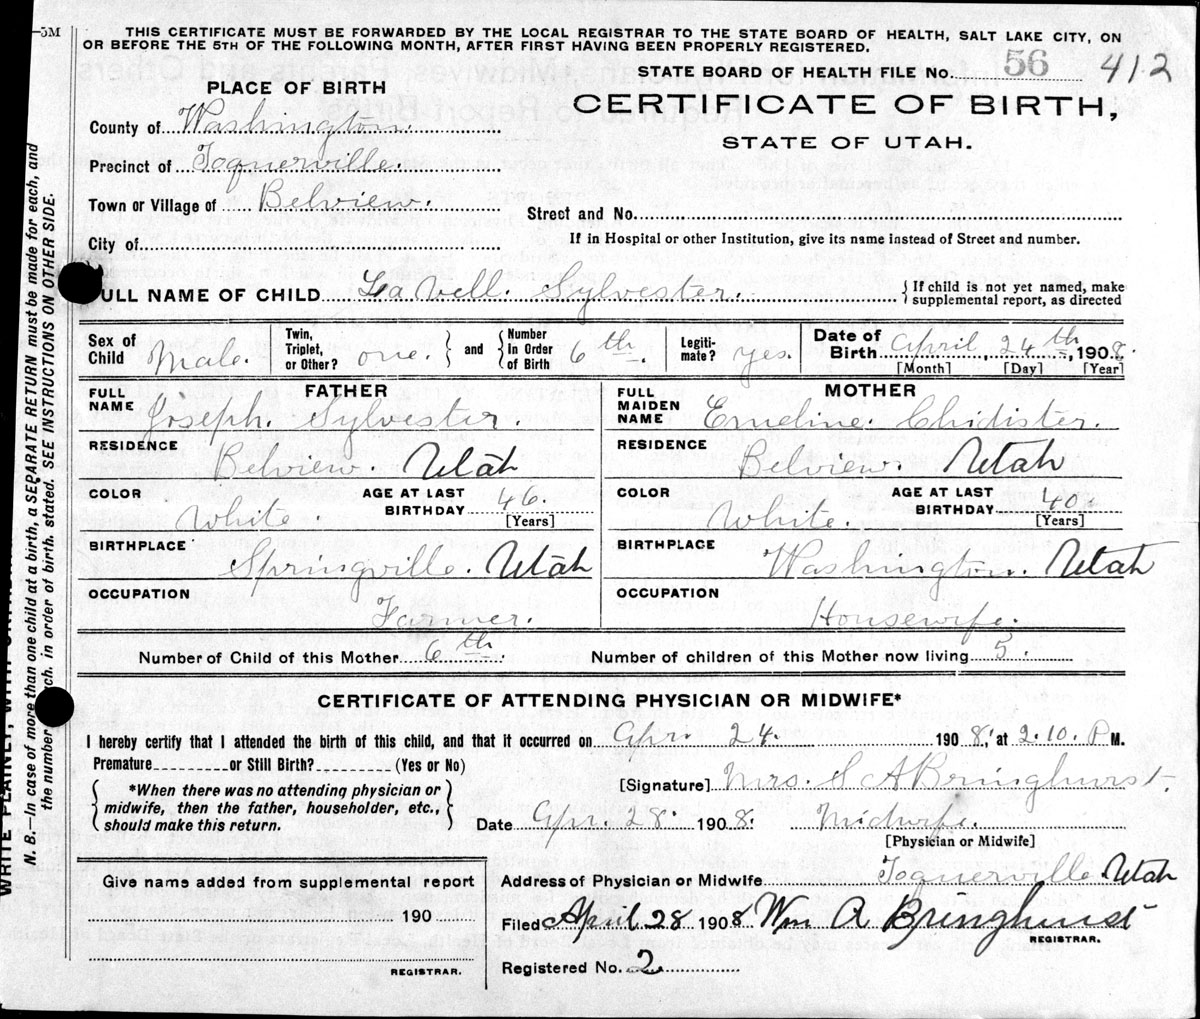 —5M
THIS CERTIFICATE MUST BE FORWARDED BY THE LOCAL REGISTRAR TO THE STATE BOARD OF HEALTH, SALT LAKE CITY, ON
OR BEFORE THE 5TH OF THE FOLLOWING MONTH, AFTER FIRST HAVING BEEN PROPERLY REGISTERED.
STATE BOARD OF HEALTH FILE No. 56 412
PLACE OF BIRTH
CERTIFICATE OF BIRTH,
STATE OF UTAH.
County of Washington.
Precinct of Toquerville.
Town or Village of Belview.
Street and No.
City of
If in Hospital or other Institution, give its name instead of Street and number.
FULL NAME OF CHILD LaVell. Sylvester.
{ If child is not yet named, make
supplemental report, as directed
Sex of Child Male.
Twin, Triplet, or Other? one. } and { Number In Order of Birth 6th.
Legiti-mate? yes.
Date of Birth April, 24th, 1908.
[Month] [Day] [Year]
FATHER
FULL NAME Joseph. Sylvester.
RESIDENCE Belview. Utah
COLOR White.
AGE AT LAST BIRTHDAY 46.
[Years]
BIRTHPLACE Springville. Utah
OCCUPATION Farmer.
MOTHER
FULL MAIDEN NAME Emeline. Chidister.
RESIDENCE Belview. Utah
COLOR White.
AGE AT LAST BIRTHDAY 40
[Years]
BIRTHPLACE Washington. Utah
OCCUPATION Housewife.
Number of Child of this Mother 6th.
Number of children of this Mother now living 5.
CERTIFICATE OF ATTENDING PHYSICIAN OR MIDWIFE*
I hereby certify that I attended the birth of this child, and that it occurred on Apr. 24. 1908, at 2.10. P M.
Premature or Still Birth? (Yes or No)
{ *When there was no attending physician or
midwife, then the father, householder, etc.,
should make this return. }
[Signature] Mrs. S A Bringhurst.
Date Apr. 28. 1908. Midwife.
[Physician or Midwife]
Give name added from supplemental report
190
REGISTRAR.
Address of Physician or Midwife Toquerville. Utah
Filed April 28 1908. Wm A Bringhurst
REGISTRAR.
Registered No. 2
N. B.—In case of more than one child at a birth, a SEPARATE RETURN must be made for each, and
the number in order of birth. stated. SEE INSTRUCTIONS ON OTHER SIDE.
WRITE PLAINLY, WITH